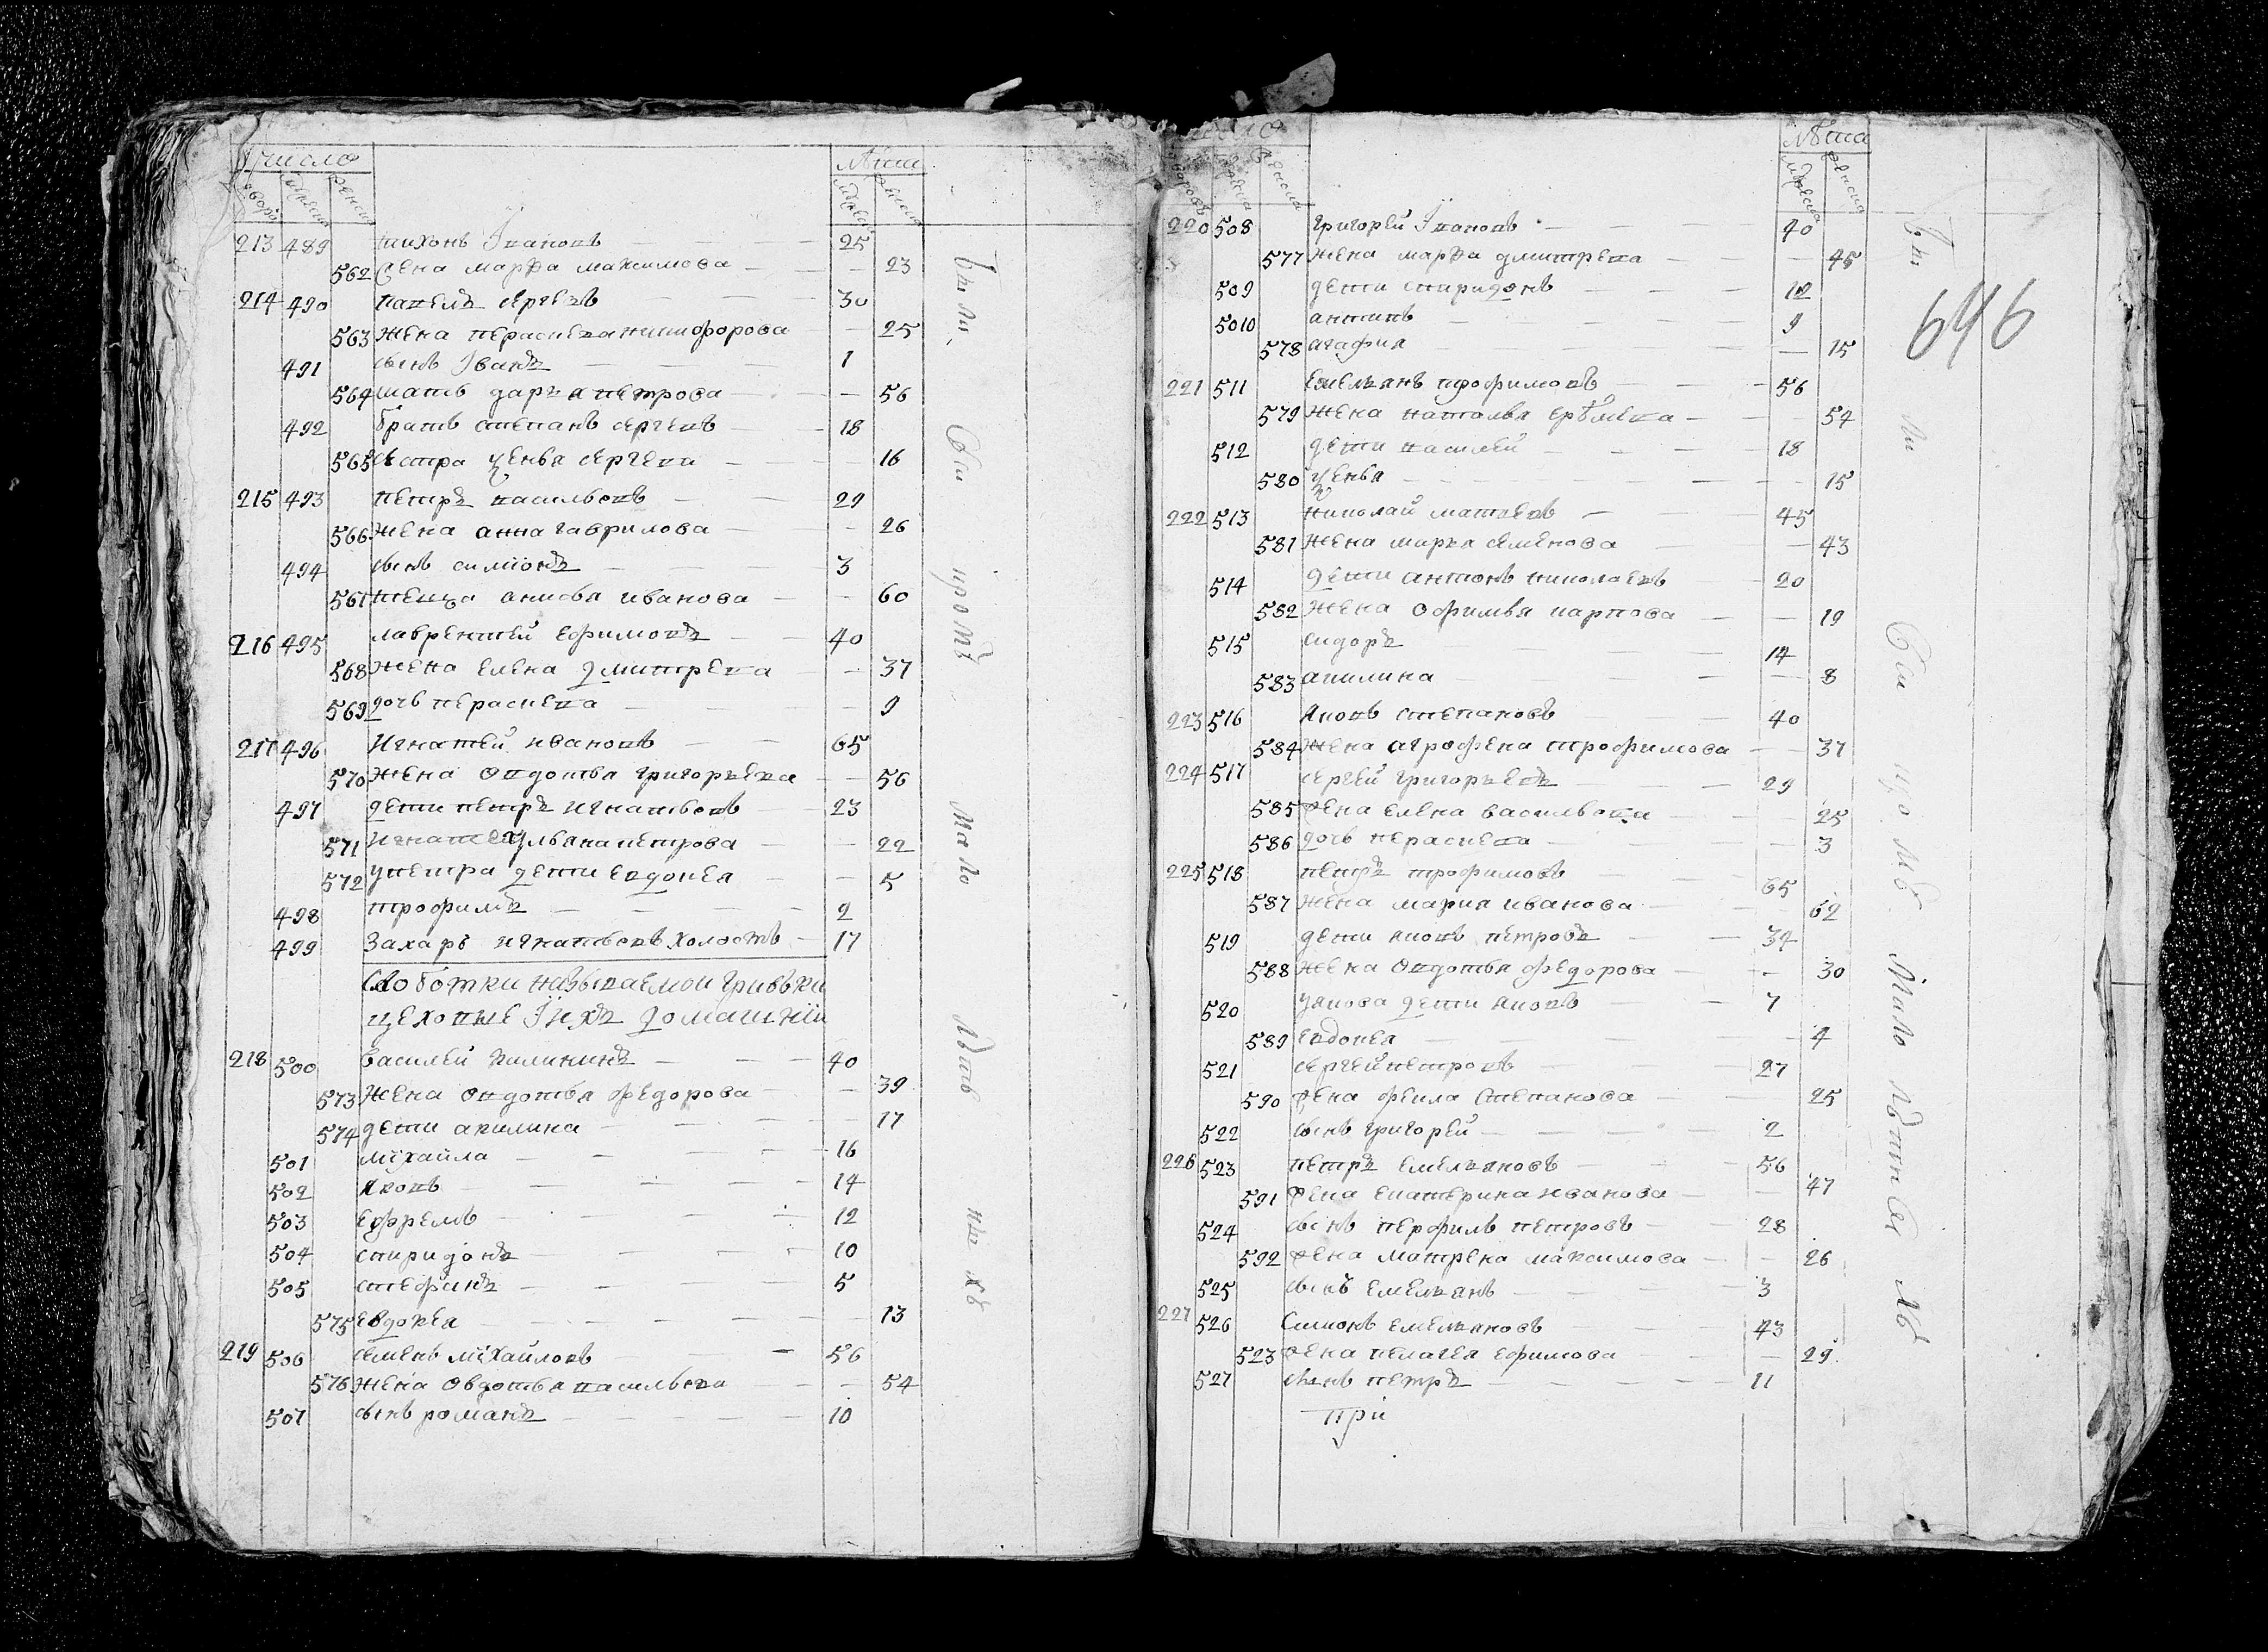 Число Лѣта
213 489 тихонъ Iвановъ 25
562 жена марфа маѯимова 23
214 490 павелъ сергевъ 30
563 жена парасковея никифорова 25
491 сынъ Iванъ 1
564 мать даръя петрова 56
492 братъ степанъ сергевъ 18
565 сестра сергева 16
215 493 петръ васильевъ 29
566 жена анна гаврилова 26
494 сынъ симiонъ 3
567 теща анисья иванова 60
216 495 лаврентей ефимовъ 40
568 жена елена дмитрева 37
569 дочь параскева 9
217 496 Игнатей ивановъ 65
570 жена овдотья григоръева 56
497 дети петръ игнатьевъ 23
571 ульяна петрова 22
572 упетра дети евдокея 5
498 трофимъ 2
499 Захаръ игнатьевъ холостъ 17
слоботки называемои гривъки
цеховые Iихъ домашнiи
218 500 василей калининъ 40
573 жена овдотья федорова 39
574 дети акилина 17
501 мiхайла 16
502 яковъ 14
503 ефремъ 12
504 спиридонъ 10
505 стефанъ 5
575 евдокея 13
219 506 семенъ мiхайловъ 56
576 жена овдотья васильева 54
507 сынъ романъ 10
были вси кромѣ мало лѣтныхъ
Лѣта
646
220 508 григорей Iвановъ 40
577 жена марфа дмитрева 45
509 дети спиридонъ 12
5010 антипъ 9
578 агафия 15
221 511 емелъянъ трофимовъ 56
579 жена наталья ерѣмева 54
512 дети василей 18
580 15
222 513 николай матвевъ 45
581 жена маръя семенова 43
514 дети антонъ николаевъ 20
582 жена офимья карпова 19
515 сидоръ 14
583 акилина 8
223 516 яковъ степановъ 40
584 жена агрофена трофимова 37
224 517 сергей григоръевъ 29
585 жена елена васильева 25
586 дочь параскева 3
225 518 петръ трофимовъ 65
587 жена мария иванова 62
519 дети яковъ петровъ 34
588 жена овдотья федорова 30
520 уякова дети яковъ 7
589 евдокея 4
521 сергей петровъ 27
590 жена фекла степанова 25
522 сынъ григорей 2
226 523 петръ емелъяновъ 56
591 жена екатерина иванова 47
524 сынъ перфиль петровъ 28
592 жена матрена маѯимова 26
525 сынъ емелъянъ 3
227 526 симонъ емелъяновъ 43
523 жена пелагея ефимова 29
527 сынъ петръ 11
при